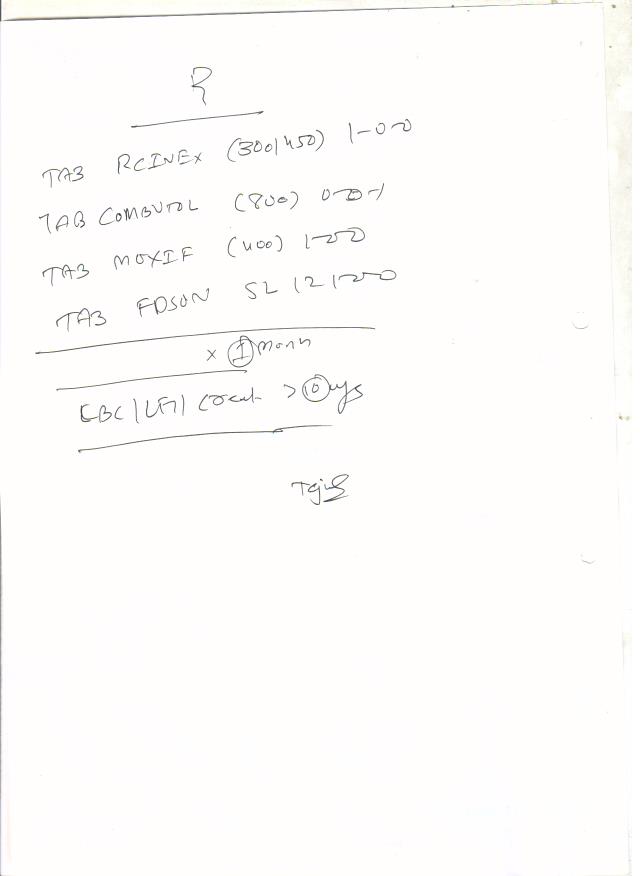 R
TAB RCINEX (300/450) 1-0-0
TAB COMBUTOL (800) 0-0-1
TAB MOXIF (400) 1-0-0
TAB FDSON SL 12 1-0-0
x 1 month
CBC / LFT / Creat > 10 days